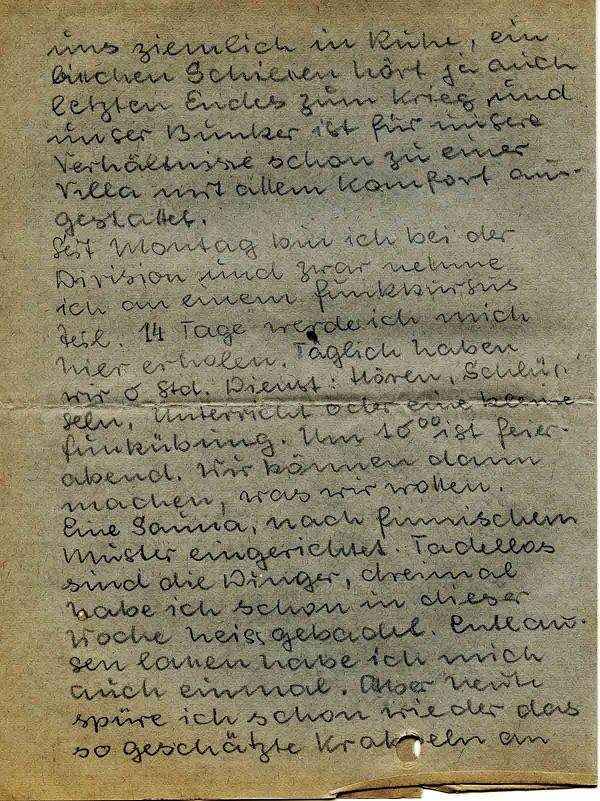 uns ziemlich in Ruhe, ein
bischen Schiesen hört ja auch
letzten Endes zum Krieg und
unser Bunker ist für unsere
Verhältnisse schon zu einer
Villa mit allem Komfort aus-
gestattet.
Seit Montag bin ich bei der
Division und zwar nehme
ich an einem Funkkursus
teil. 14 Tage werde ich mich
hier erholen. Täglich haben
wir 6 Std. Dienst: Hören, Schlüs-
seln, Unterricht oder eine kleine
Funkübung. Um 16⁰⁰ ist Feier-
abend. Wir können dann
machen, was wir wollen.
Eine Sauna, nach finnischem
Muster eingerichtet. Tadellos
sind die Dinger, dreimal
habe ich schon in dieser
Woche heiss gebadet. Entlau-
sen lassen habe ich mich
auch einmal. Aber heute
spüre ich schon wieder das
so geschätzte Krabbeln an